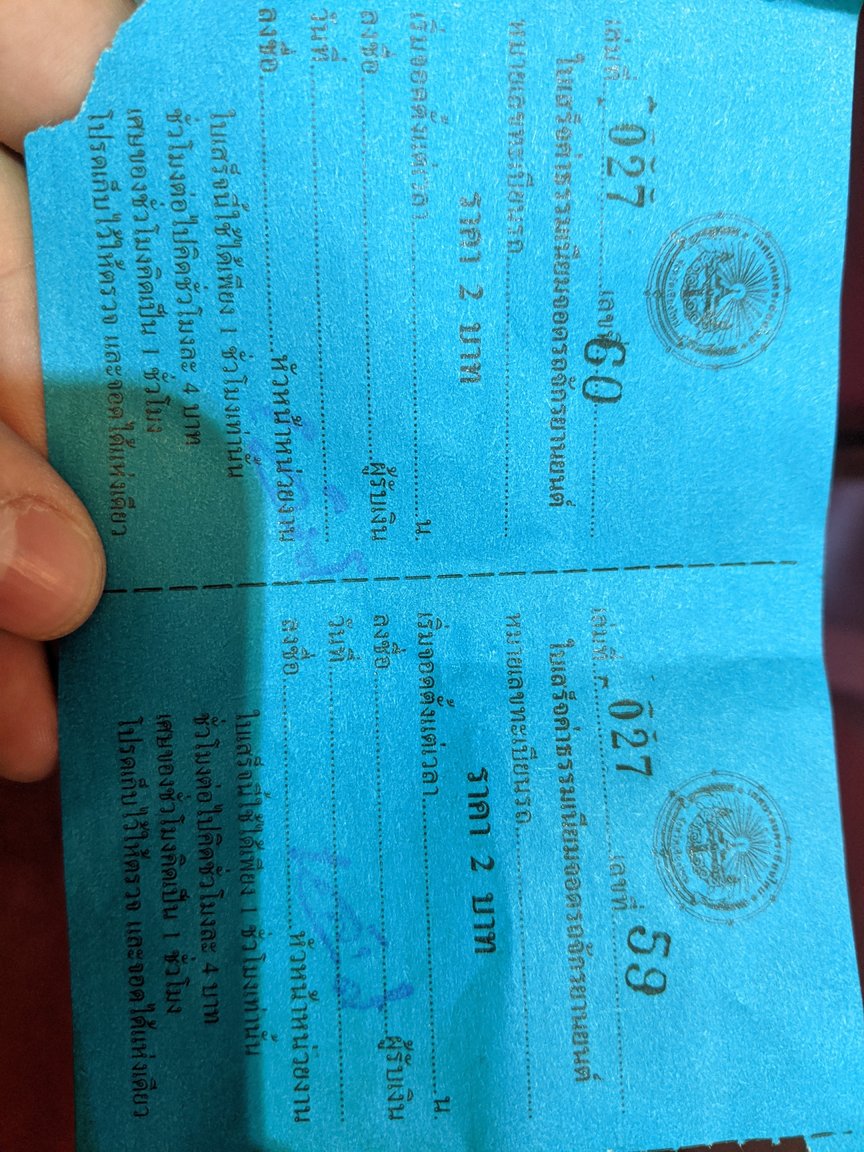 เล่มที่ 027 เลขที่ 60
ใบเสร็จค่าธรรมเนียมจอดรถจักรยานยนต์
หมายเลขทะเบียนรถ
ราคา 2 บาท
เริ่มจอดตั้งแต่เวลา น.
ลงชื่อ ผู้รับเงิน
วันที่
ลงชื่อ หัวหน้าหน่วยงาน
ใบเสร็จนี้ใช้ได้เพียง 1 ชั่วโมงเท่านั้น
ชั่วโมงต่อไปคิดชั่วโมงละ 4 บาท
เศษของชั่วโมงคิดเป็น 1 ชั่วโมง
โปรดเก็บไว้ให้ตรวจ และจอดได้แห่งเดียว
เล่มที่ 027 เลขที่ 59
ใบเสร็จค่าธรรมเนียมจอดรถจักรยานยนต์
หมายเลขทะเบียนรถ
ราคา 2 บาท
เริ่มจอดตั้งแต่เวลา น.
ลงชื่อ ผู้รับเงิน
วันที่
ลงชื่อ หัวหน้าหน่วยงาน
ใบเสร็จนี้ใช้ได้เพียง 1 ชั่วโมงเท่านั้น
ชั่วโมงต่อไปคิดชั่วโมงละ 4 บาท
เศษของชั่วโมงคิดเป็น 1 ชั่วโมง
โปรดเก็บไว้ให้ตรวจ และจอดได้แห่งเดียว